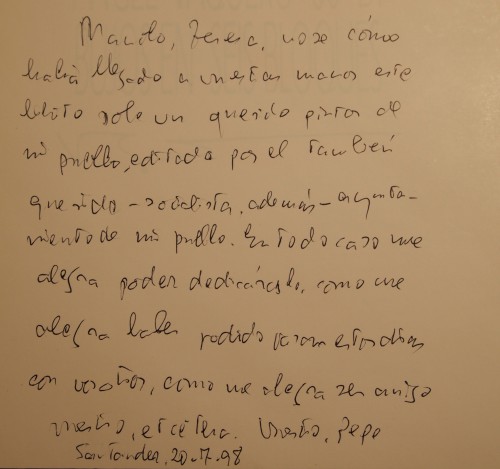 Manolo, Teresa, no se cómo
había llegado a vuestras manos este
librito sobre un querido pintor de
mi pueblo, editado por el también
querido - socialista, además - ayunta-
miento de mi pueblo. En todo caso me
alegra poder dedicároslo, como me
alegra haber podido pasar estos días
con vosotros, como me alegra ser amigo
vuestro, etcétera. Vuestro, Pepe
Santander, 20-7-98